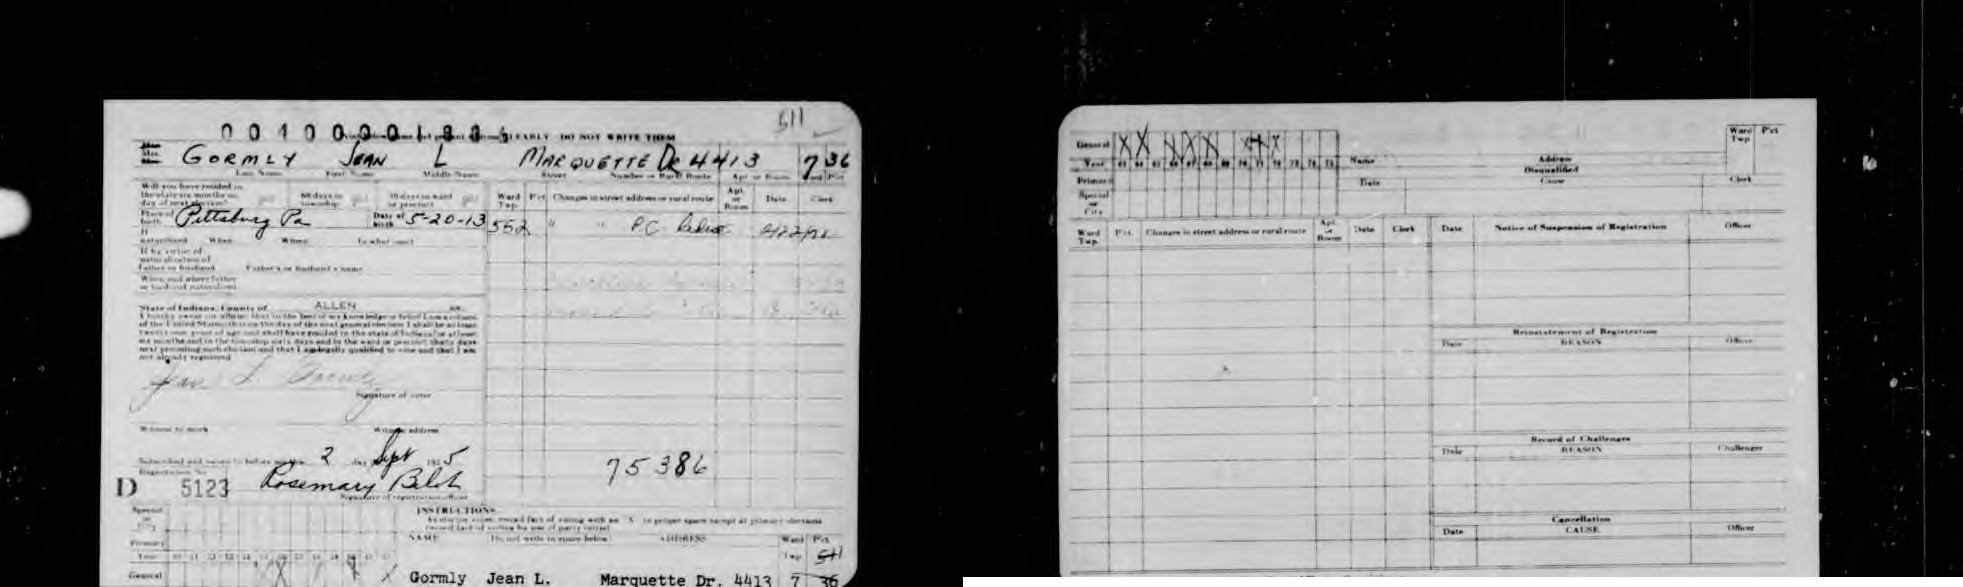 CLEARLY DO NOT WRITE THEM
511
GORMLY JEAN L MARQUETTE Dr 4413 7 36
Last Name First Name Middle Name Street Number or Rural Route Apt or Room Ward Pct
Will you have resided in
the state six months on
day of next election?
60 days in
township
30 days in ward
or precinct
Place of
birth Pittsburg Pa Date of
birth 5-20-13
If
naturalized When Where In what court
If by virtue of
naturalization of
father or husband Father's or husband's name
When and where father
or husband naturalized
State of Indiana, County of ALLEN
I hereby swear (or affirm) that to the best of my knowledge or belief I am a citizen
of the United States, that on the day of the next general election I shall be at least
twenty-one years of age and shall have resided in the state of Indiana for at least
six months and in the township sixty days and in the ward or precinct thirty days
next preceding such election and that I am legally qualified to vote and that I am
not already registered
Jean L. Gormly
Signature of voter
Witness to mark Witness address
Subscribed and sworn to before me this 2 day Sept 195 5
Registration No
D 5123 Rosemary
Signature of registration officer
Ward
Twp. Pct Changes in street address or rural route Apt
or
Room Date Clerk
552 " " P.C.
75386
INSTRUCTIONS
NAME Do not write in space below ADDRESS Ward
Twp. Pct
Special
or
City
Primary
Year
General
511
Gormly Jean L. Marquette Dr. 4413 7 36
General
Year 63 64 65 66 67 68 69 70 71 72 73 74 75
Primary
Special
or
City
Name Address Ward
Twp Pct
Disqualified
Date Cause Clerk
Ward
Twp. Pct. Changes in street address or rural route Apt.
or
Room Date Clerk
Date Notice of Suspension of Registration Officer
Reinstatement of Registration
Date REASON Officer
Record of Challenges
Date REASON Challenger
Cancellation
Date CAUSE Officer